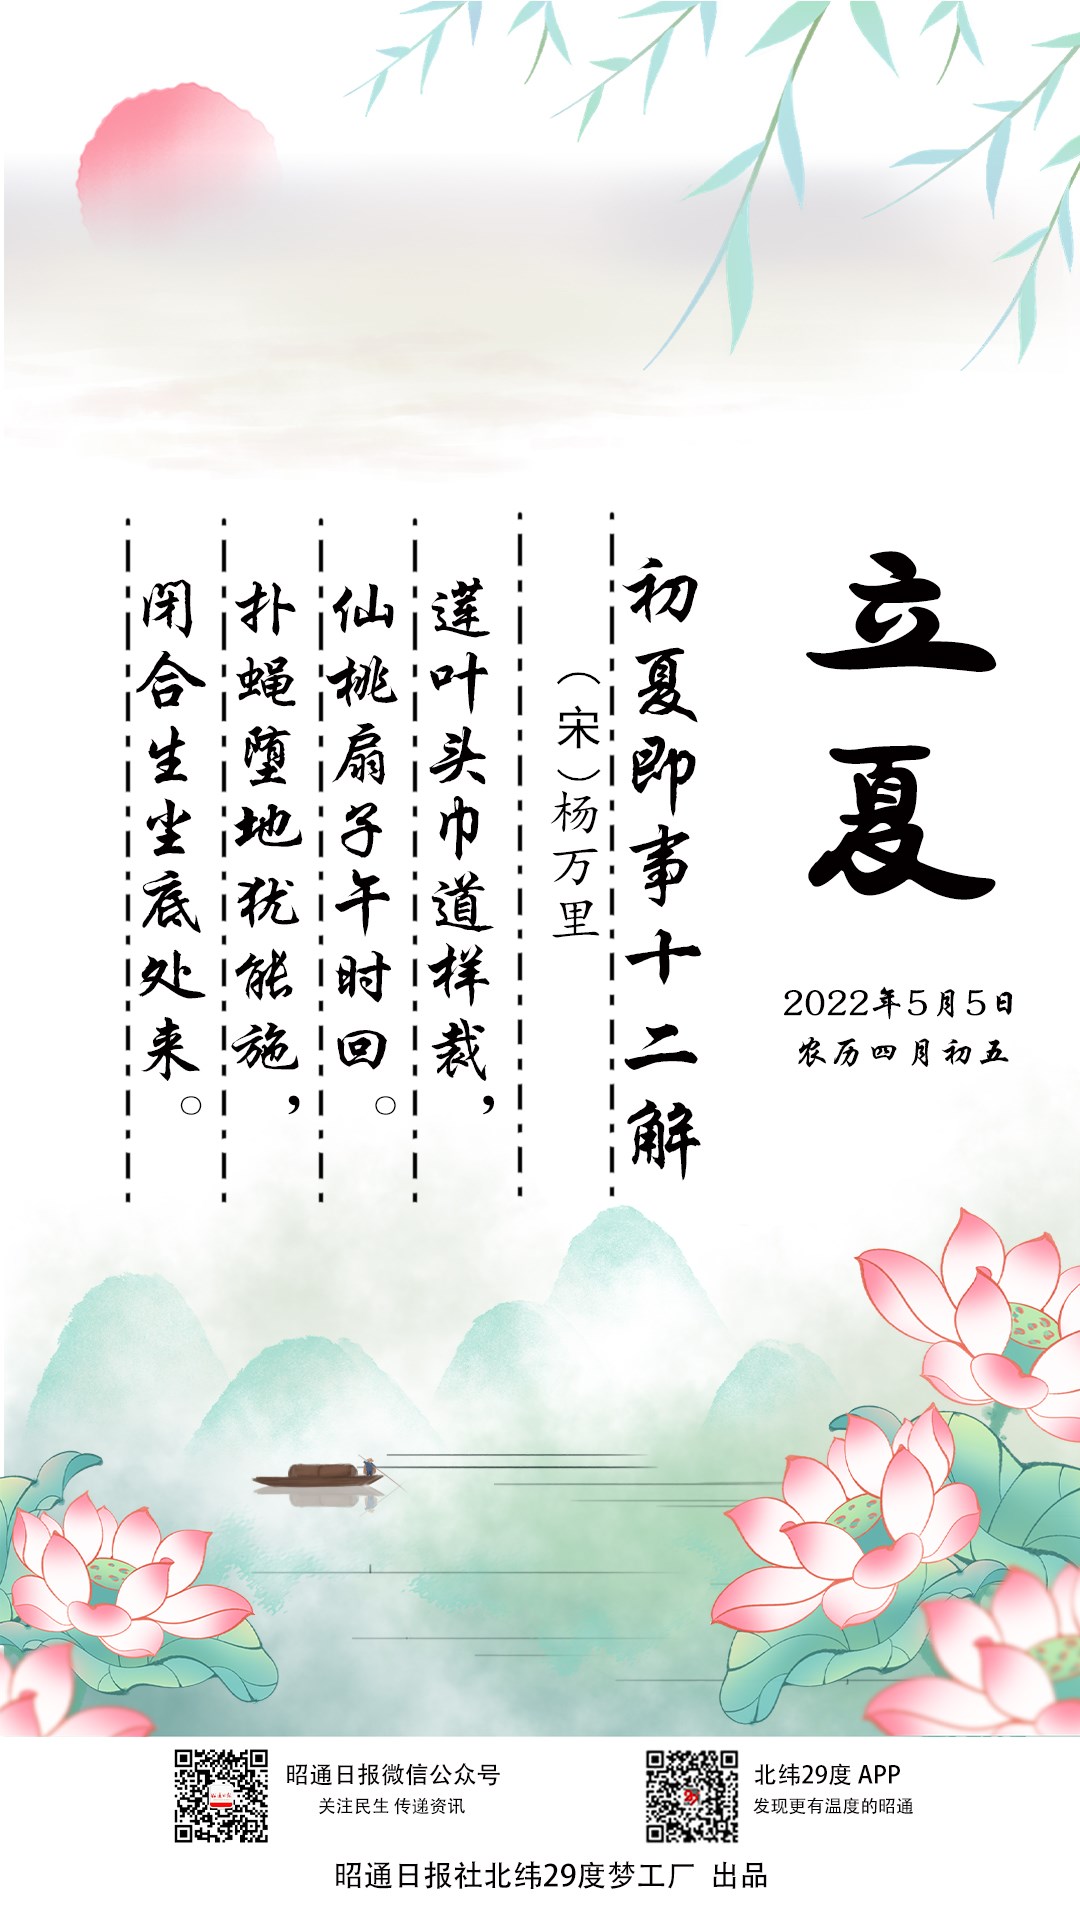 立夏
2022年5月5日
农历四月初五
初夏即事十二解
（宋）杨万里
莲叶头巾道样裁，
仙桃扇子午时回。
扑蝇堕地犹能施，
闭合生尘底处来。
昭通日报微信公众号
关注民生 传递资讯
北纬29度 APP
发现更有温度的昭通
昭通日报社北纬29度梦工厂 出品